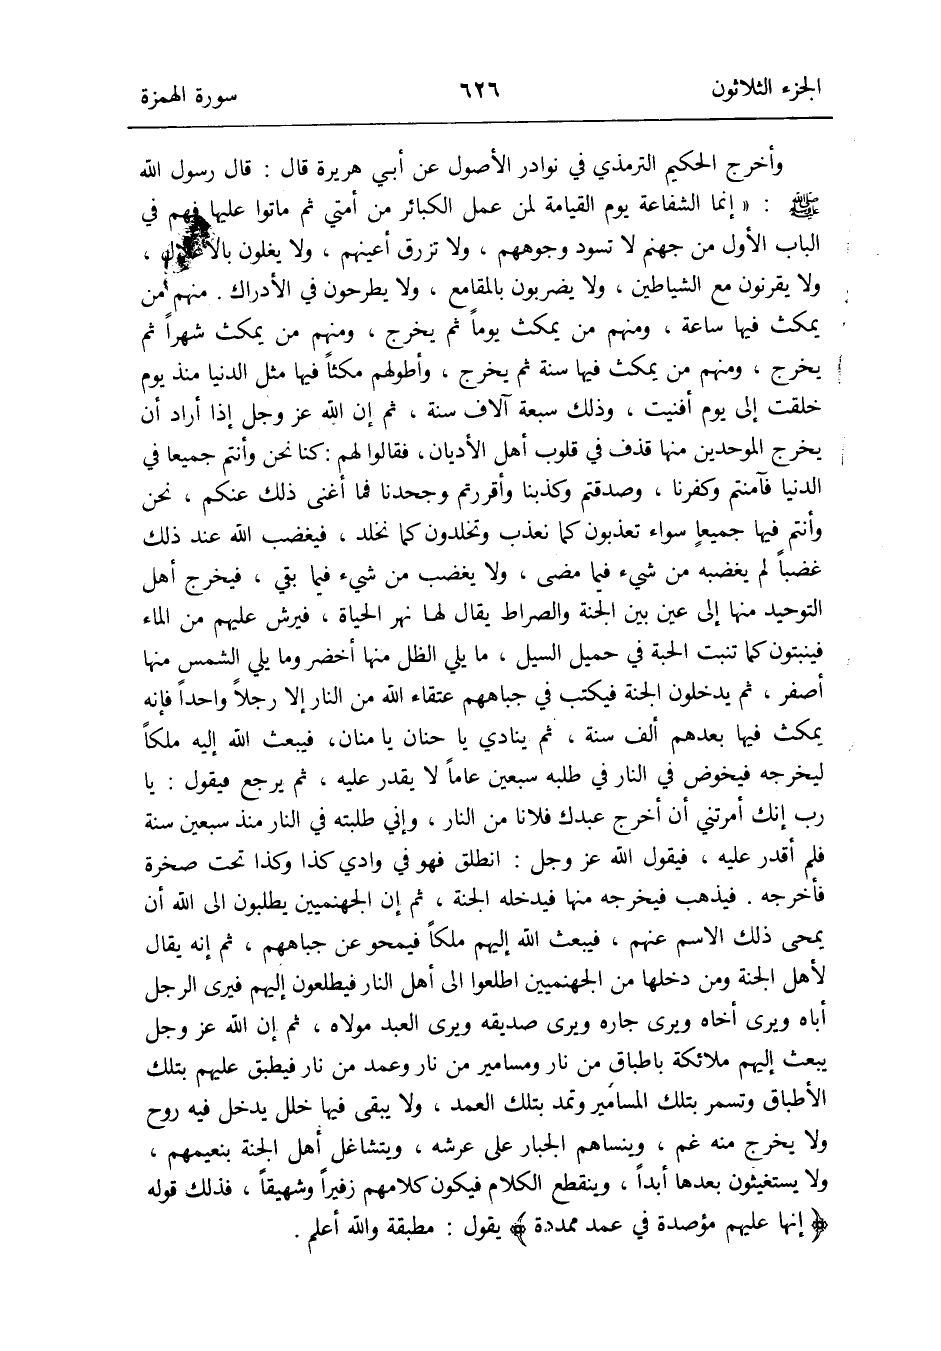 الجزء الثلاثون ٦٢٦ سورة الهمزة
وأخرج الحكيم الترمذي في نوادر الأصول عن أبي هريرة قال : قال رسول الله
ﷺ : « إنما الشفاعة يوم القيامة لمن عمل الكبائر من أمتي ثم ماتوا عليها فهم في
الباب الأول من جهنم لا تسود وجوههم ، ولا تزرق أعينهم ، ولا يغلون بالأغلال ،
ولا يقرنون مع الشياطين ، ولا يضربون بالمقامع ، ولا يطرحون في الأدراك . منهم من
يمكث فيها ساعة ، ومنهم من يمكث يوماً ثم يخرج ، ومنهم من يمكث شهراً ثم
يخرج ، ومنهم من يمكث فيها سنة ثم يخرج ، وأطولهم مكثاً فيها مثل الدنيا منذ يوم
خلقت إلى يوم أفنيت ، وذلك سبعة آلاف سنة ، ثم إن الله عز وجل إذا أراد أن
يخرج الموحدين منها قذف في قلوب أهل الأديان ، فقالوا لهم : كنا نحن وأنتم جميعا في
الدنيا فآمنتم وكفرنا ، وصدقتم وكذبنا وأقررتم وجحدنا فما أغنى ذلك عنكم ، نحن
وأنتم فيها جميعاً سواء تعذبون كما نعذب وتخلدون كما نخلد ، فيغضب الله عند ذلك
غضباً لم يغضبه من شيء فيما مضى ، ولا يغضب من شيء فيما بقي ، فيخرج أهل
التوحيد منها إلى عين بين الجنة والصراط يقال لها نهر الحياة ، فيرش عليهم من الماء
فينبتون كما تنبت الحبة في حميل السيل ، ما يلي الظل منها أخضر وما يلي الشمس منها
أصفر ، ثم يدخلون الجنة فيكتب في جباههم عتقاء الله من النار إلا رجلاً واحداً فإنه
يمكث فيها بعدهم ألف سنة ، ثم ينادي يا حنان يا منان، فيبعث الله إليه ملكاً
ليخرجه فيخوض في النار في طلبه سبعين عاماً لا يقدر عليه ، ثم يرجع فيقول : يا
رب إنك أمرتني أن أخرج عبدك فلانا من النار ، وإني طلبته في النار منذ سبعين سنة
فلم أقدر عليه ، فيقول الله عز وجل : انطلق فهو في وادي كذا وكذا تحت صخرة
فأخرجه . فيذهب فيخرجه منها فيدخله الجنة ، ثم إن الجهنميين يطلبون الى الله أن
يمحى ذلك الاسم عنهم ، فيبعث الله إليهم ملكاً فيمحو عن جباههم ، ثم إنه يقال
لأهل الجنة ومن دخلها من الجهنميين اطلعوا الى أهل النار فيطلعون إليهم فيرى الرجل
أباه ويرى أخاه ويرى جاره ويرى صديقه ويرى العبد مولاه ، ثم إن الله عز وجل
يبعث إليهم ملائكة باطباق من نار ومسامير من نار وعمد من نار فيطبق عليهم بتلك
الأطباق وتسمر بتلك المسامير وتمد بتلك العمد ، ولا يبقى فيها خلل يدخل فيه روح
ولا يخرج منه غم ، وينساهم الجبار على عرشه ، ويتشاغل أهل الجنة بنعيمهم ،
ولا يستغيثون بعدها أبداً ، وينقطع الكلام فيكون كلامهم زفيراً وشهيقاً ، فذلك قوله
﴿ إنها عليهم مؤصدة في عمد ممددة ﴾ يقول : مطبقة والله أعلم .